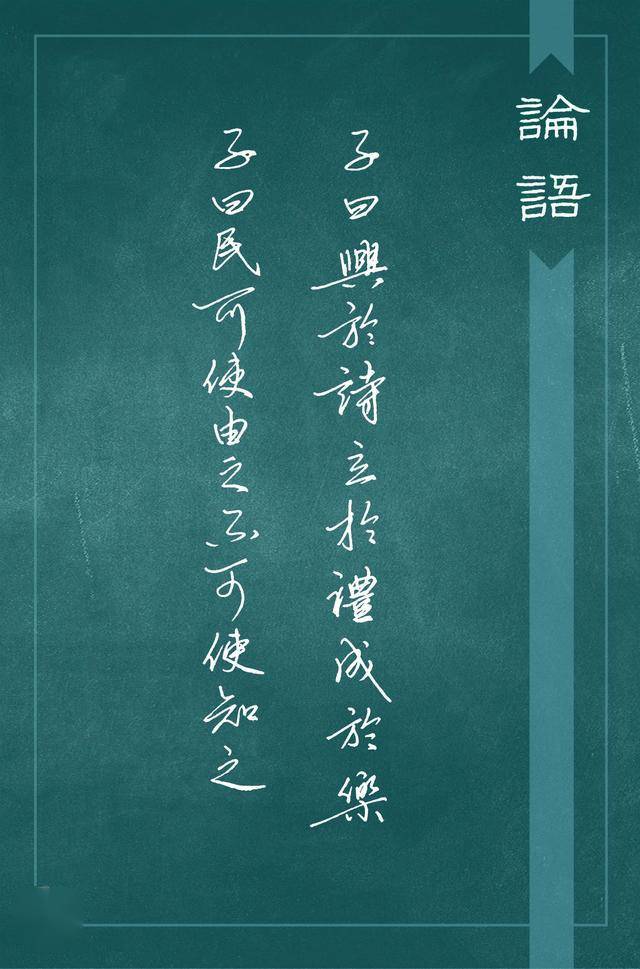 論語
子曰興於詩立於禮成於樂
子曰民可使由之不可使知之